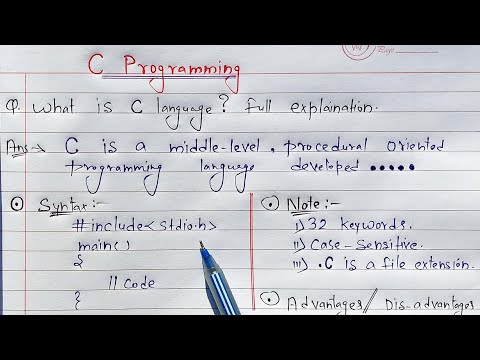 C Programming
Q. What is C language? full explaination.
Ans → C is a middle-level, procedural oriented
programming language developed .....
Syntax :-
#include<stdio.h>
main()
{
// Code
}
Note :-
i) 32 keywords.
ii) Case-Sensitive.
iii) .C is a file extension.
Advantages/Dis-advantages